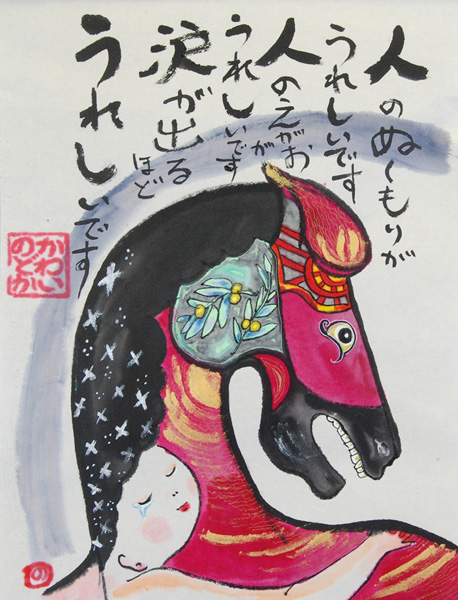 人のぬくもりが
うれしいです
人のえがおが
うれしいです
涙が出るほど
うれしいです
かわい
のどか
の